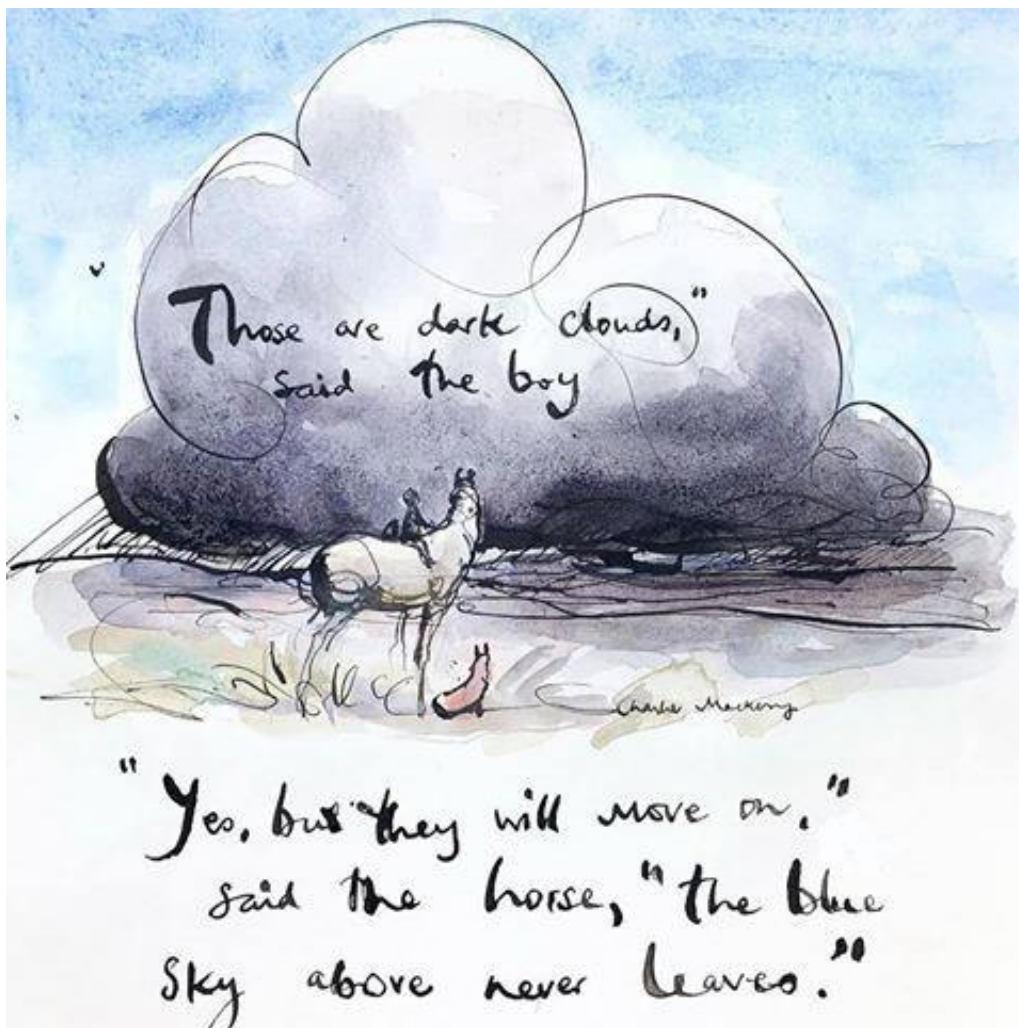 Those are dark clouds,"
said the boy
Charlie Mackesy
"Yes, but they will move on."
said the horse, "the blue
sky above never leaves."